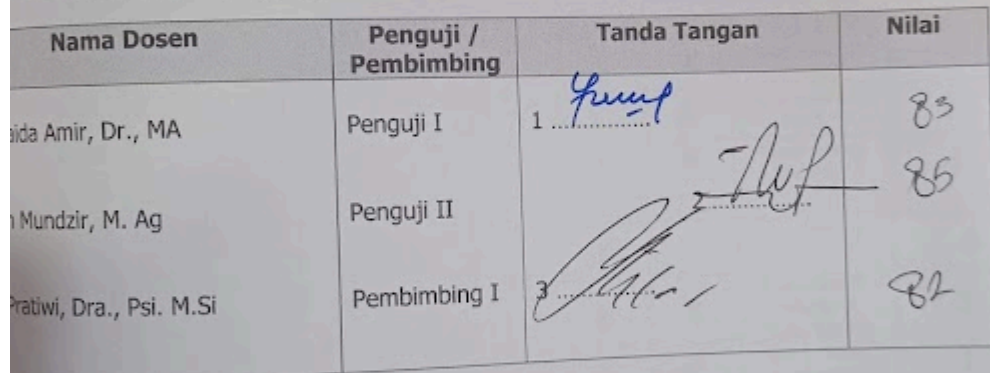 Nama Dosen Penguji / Pembimbing Tanda Tangan Nilai
Amir, Dr., MA Penguji I 1 83
Mundzir, M. Ag Penguji II 2 85
Pratiwi, Dra., Psi. M.Si Pembimbing I 3 82